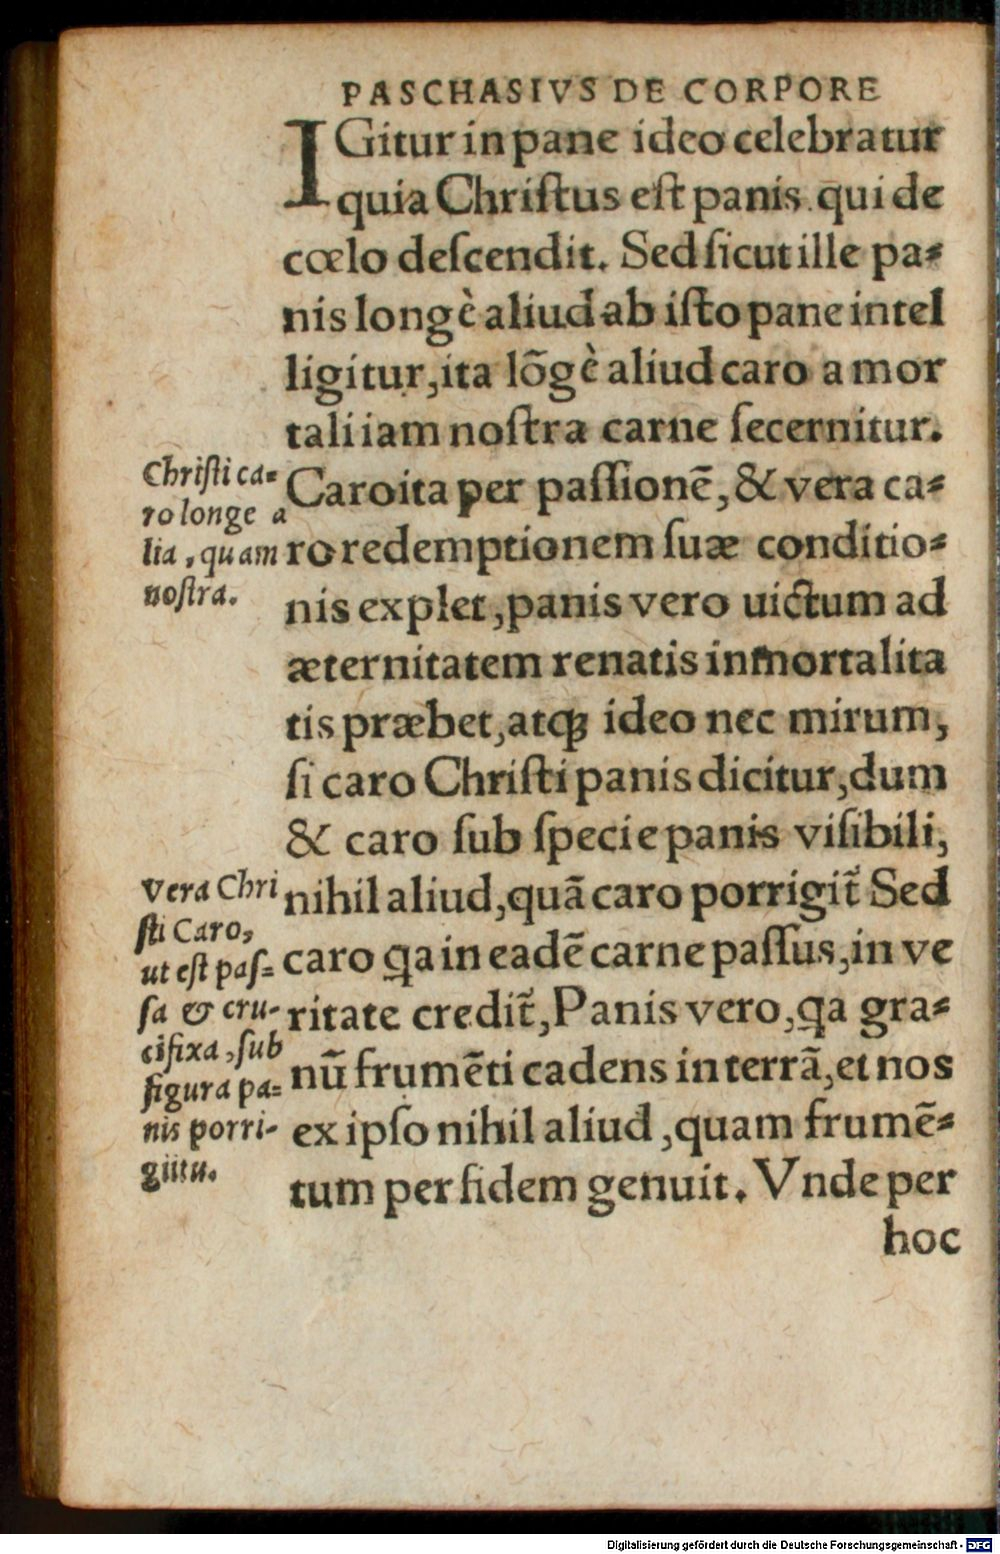 PASCHASIVS DE CORPORE
IGitur in pane ideo celebratur
quia Chriſtus eſt panis qui de
cœlo deſcendit. Sed ſicut ille pa-
nis longè aliud ab iſto pane intel
ligitur, ita lõgè aliud caro a mor
tali iam noſtra carne ſecernitur.
Caro ita per paſſionē, & vera ca-
ro redemptionem ſuæ conditio-
nis explet, panis vero uictum ad
æternitatem renatis inmortalita
tis præbet, atq̃ ideo nec mirum,
ſi caro Chriſti panis dicitur, dum
& caro ſub ſpecie panis viſibili,
nihil aliud, quã caro porrigit᷑ Sed
caro q̃a in eadē carne paſſus, in ve
ritate credit᷑, Panis vero, q̃a gra-
nũ frumēti cadens in terrã, et nos
ex ipſo nihil aliud, quam frumē-
tum per fidem genuit. Vnde per
hoc
Chriſti ca-
ro longe a
lia, quam
noſtra.
Vera Chri
ſti Caro,
ut eſt paſ-
ſa & cru-
cifixa, ſub
figura pa-
nis porri-
gitu.
Digitalisierung gefördert durch die Deutsche Forschungsgemeinschaft - DFG